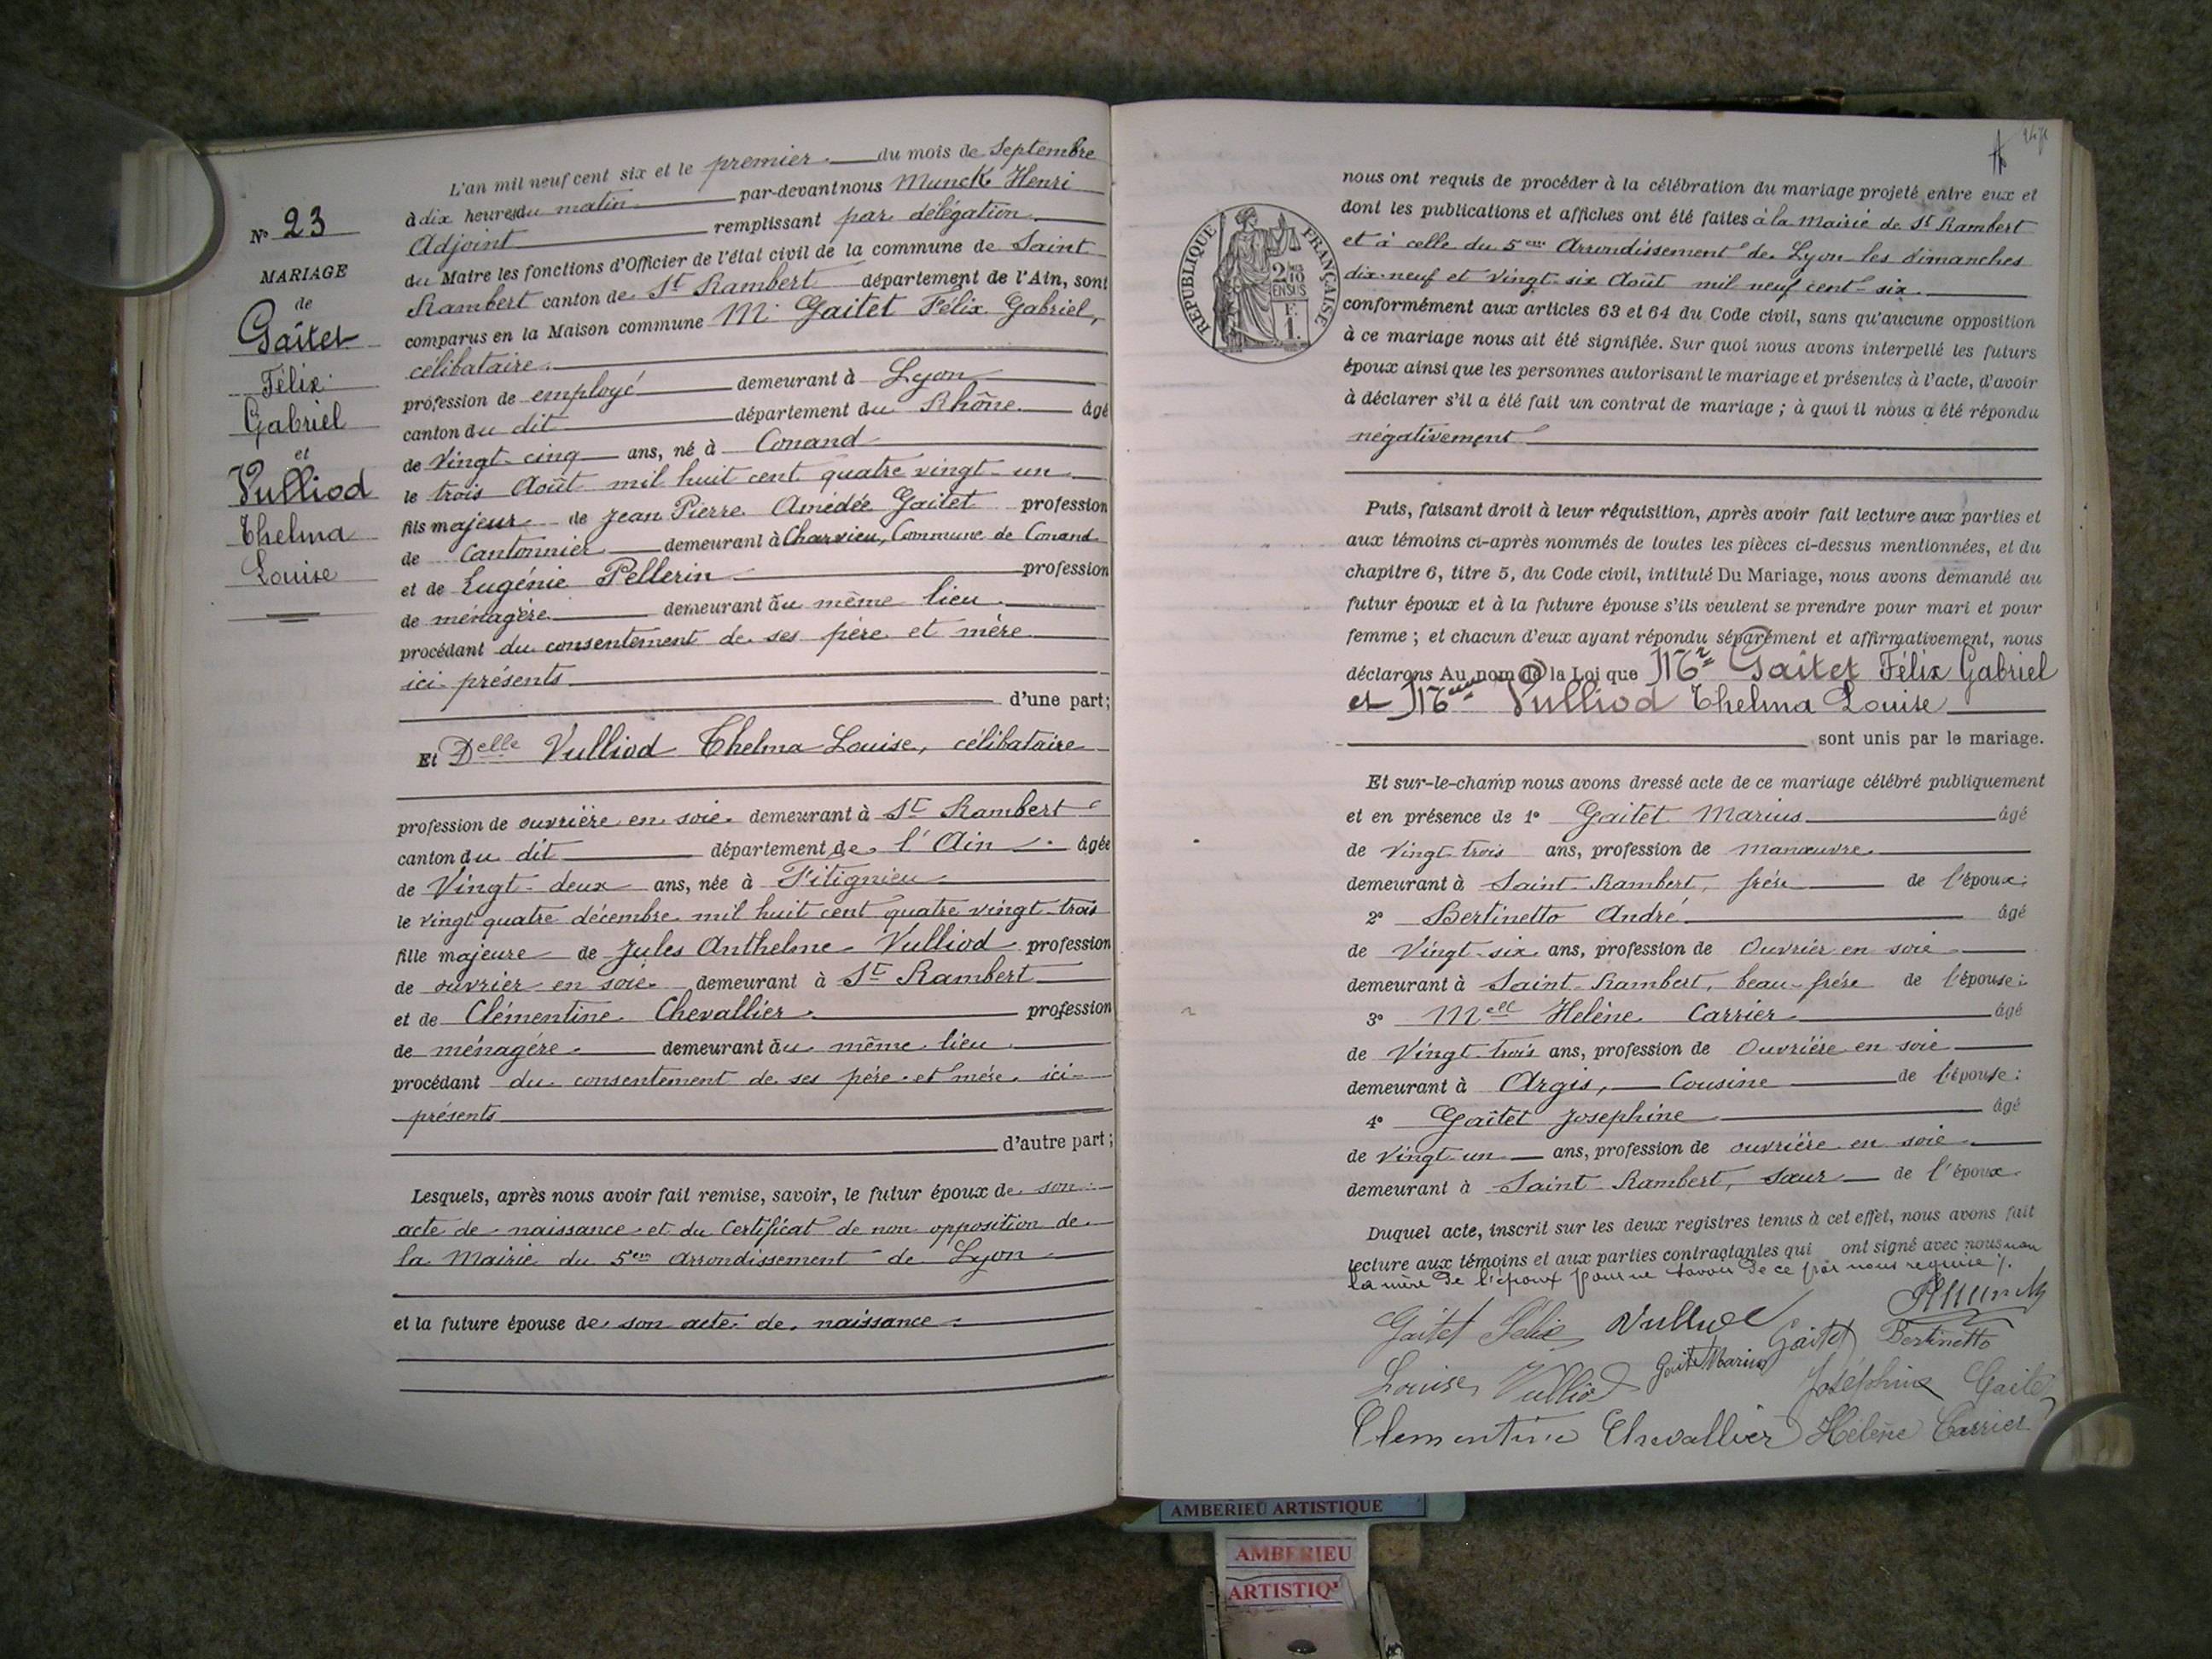 L'an mil neuf cent six et le premier du mois de Septembre
à dix heures du matin par-devant nous Munck Henri
Adjoint remplissant par délégation
du Maire les fonctions d'Officier de l'état civil de la commune de Saint
Rambert canton de St Rambert département de l'Ain, sont
comparus en la Maison commune M. Gaitet Félix Gabriel,
célibataire
profession de employé demeurant à Lyon
canton du dit département du Rhône âgé
de Vingt-cinq ans, né à Conand
le trois Août mil huit cent quatre vingt-un
fils majeur de Jean Pierre Amédée Gaitet profession
de Cantonnier demeurant à Charvieu, Commune de Conand
et de Eugénie Pellerin profession
de ménagère demeurant au même lieu
procédant du consentement de ses père et mère
ici présents
d'une part;
Et Delle Vulliod Thelma Louise, célibataire
profession de ouvrière en soie demeurant à St Rambert
canton du dit département de l'Ain âgée
de Vingt-deux ans, née à Fitignieu
le vingt quatre décembre mil huit cent quatre vingt-trois
fille majeure de Jules Anthelme Vulliod profession
de ouvrier en soie demeurant à St Rambert
et de Clémentine Chevallier profession
de ménagère demeurant au même lieu
procédant du consentement de ses père et mère ici-
présents
d'autre part;
Lesquels, après nous avoir fait remise, savoir, le futur époux de son
acte de naissance et du Certificat de non opposition de
la Mairie du 5em Arrondissement de Lyon
et la future épouse de son acte de naissance
No 23
MARIAGE
de
Gaîtet
Félix
Gabriel
et
Vulliod
Thelma
Louise
RÉPUBLIQUE FRANÇAISE
2/10
EN SUS
F.
1.
nous ont requis de procéder à la célébration du mariage projeté entre eux et
dont les publications et affiches ont été faites à la Mairie de St Rambert
et à celle du 5em Arrondissement de Lyon les dimanches
dix-neuf et vingt-six Août mil neuf cent-six
conformément aux articles 63 et 64 du Code civil, sans qu'aucune opposition
à ce mariage nous ait été signifiée. Sur quoi nous avons interpellé les futurs
époux ainsi que les personnes autorisant le mariage et présentes à l'acte, d'avoir
à déclarer s'il a été fait un contrat de mariage; à quoi il nous a été répondu
négativement
Puis, faisant droit à leur réquisition, après avoir fait lecture aux parties et
aux témoins ci-après nommés de toutes les pièces ci-dessus mentionnées, et du
chapitre 6, titre 5, du Code civil, intitulé Du Mariage, nous avons demandé au
futur époux et à la future épouse s'ils veulent se prendre pour mari et pour
femme; et chacun d'eux ayant répondu séparément et affirmativement, nous
déclarons Au nom de la Loi que Mr Gaîtet Félix Gabriel
et Melle Vulliod Thelma Louise
sont unis par le mariage.
Et sur-le-champ nous avons dressé acte de ce mariage célébré publiquement
et en présence de 1o Gaitet Marius âgé
de Vingt-trois ans, profession de manœuvre
demeurant à Saint-Rambert, frère de l'époux;
2o Bertinetto André âgé
de Vingt-six ans, profession de Ouvrier en soie
demeurant à Saint-Rambert, beau-frère de l'épouse;
3o Mell Helène Carrier âgé
de Vingt-trois ans, profession de Ouvrière en soie
demeurant à Argis, Cousine de l'épouse;
4o Gaîtet Josephine âgé
de Vingt-un ans, profession de ouvrière en soie
demeurant à Saint-Rambert, sœur de l'époux
Duquel acte, inscrit sur les deux registres tenus à cet effet, nous avons fait
lecture aux témoins et aux parties contractantes qui ont signé avec nous non
la mère de l'époux pour ne savoir de ce par nous requise /.
Gaitet Félix Vulliod Munck
Gaitet Bertinetto
Louise Vulliod Gaitet Marius Joséphine Gaitet
Clementine Chevallier Hélène Carrier
AMBERIEU ARTISTIQUE
AMBERIEU
ARTISTIQ